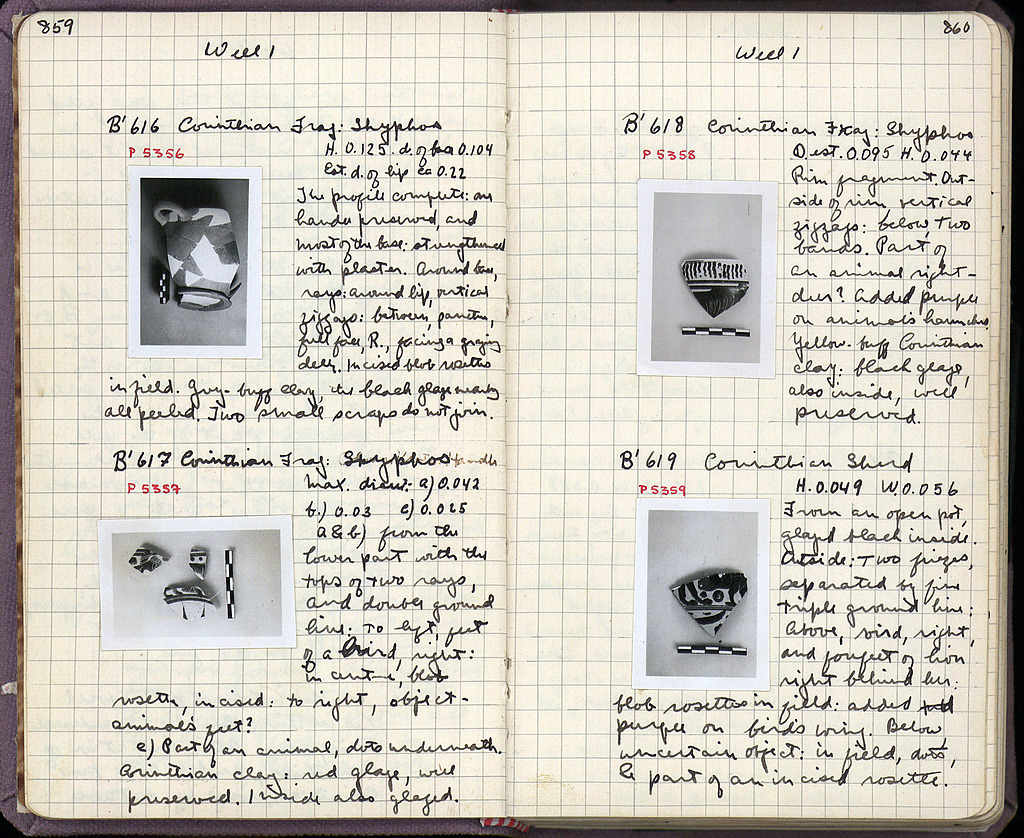 859
Well 1
B' 616 Corinthian Frag: Skyphos
P 5356
H. 0.125. d. of base 0.104
Est. d. of lip ca 0.22
The profile complete: one
handle preserved, and
most of the base: strengthened
with plaster. Around base,
rays: around lip, vertical
zigzags: between, panther,
full face, R., facing a grazing
deer. Incised blob rosettes
in field. Grey-buff clay, the black glaze nearly
all peeled. Two small scraps do not join.
B' 617 Corinthian Frag: Skyphos
P 5357
Max. diam: a) 0.042
b.) 0.03 c) 0.025
a & b) from the
lower part with the
tops of two rays,
and double ground
line: to left, feet
of a bird, right:
in centre, blob
rosette, incised: to right, object-
animal's feet?
c) Part of an animal, dots underneath.
Corinthian clay: red glaze, well
preserved. Inside also glazed.
860
Well 1
B' 618 Corinthian Frag: Skyphos
P 5358
D. est. 0.095 H. 0.044
Rim fragment. Out-
side of rim vertical
zigzags: below, two
bands. Part of
an animal right-
deer? Added purple
on animal's haunches.
Yellow-buff Corinthian
clay: black glaze,
also inside, well
preserved.
B' 619 Corinthian Sherd
P 5359
H. 0.049 W. 0.056
From an open pot,
glazed black inside.
Outside: two friezes,
separated by fine
triple ground line:
Above, bird, right,
and forefeet of lion
right behind her:
blob rosettes in field: added
purple on bird's wing. Below,
uncertain object: in field, dots,
& part of an incised rosette.